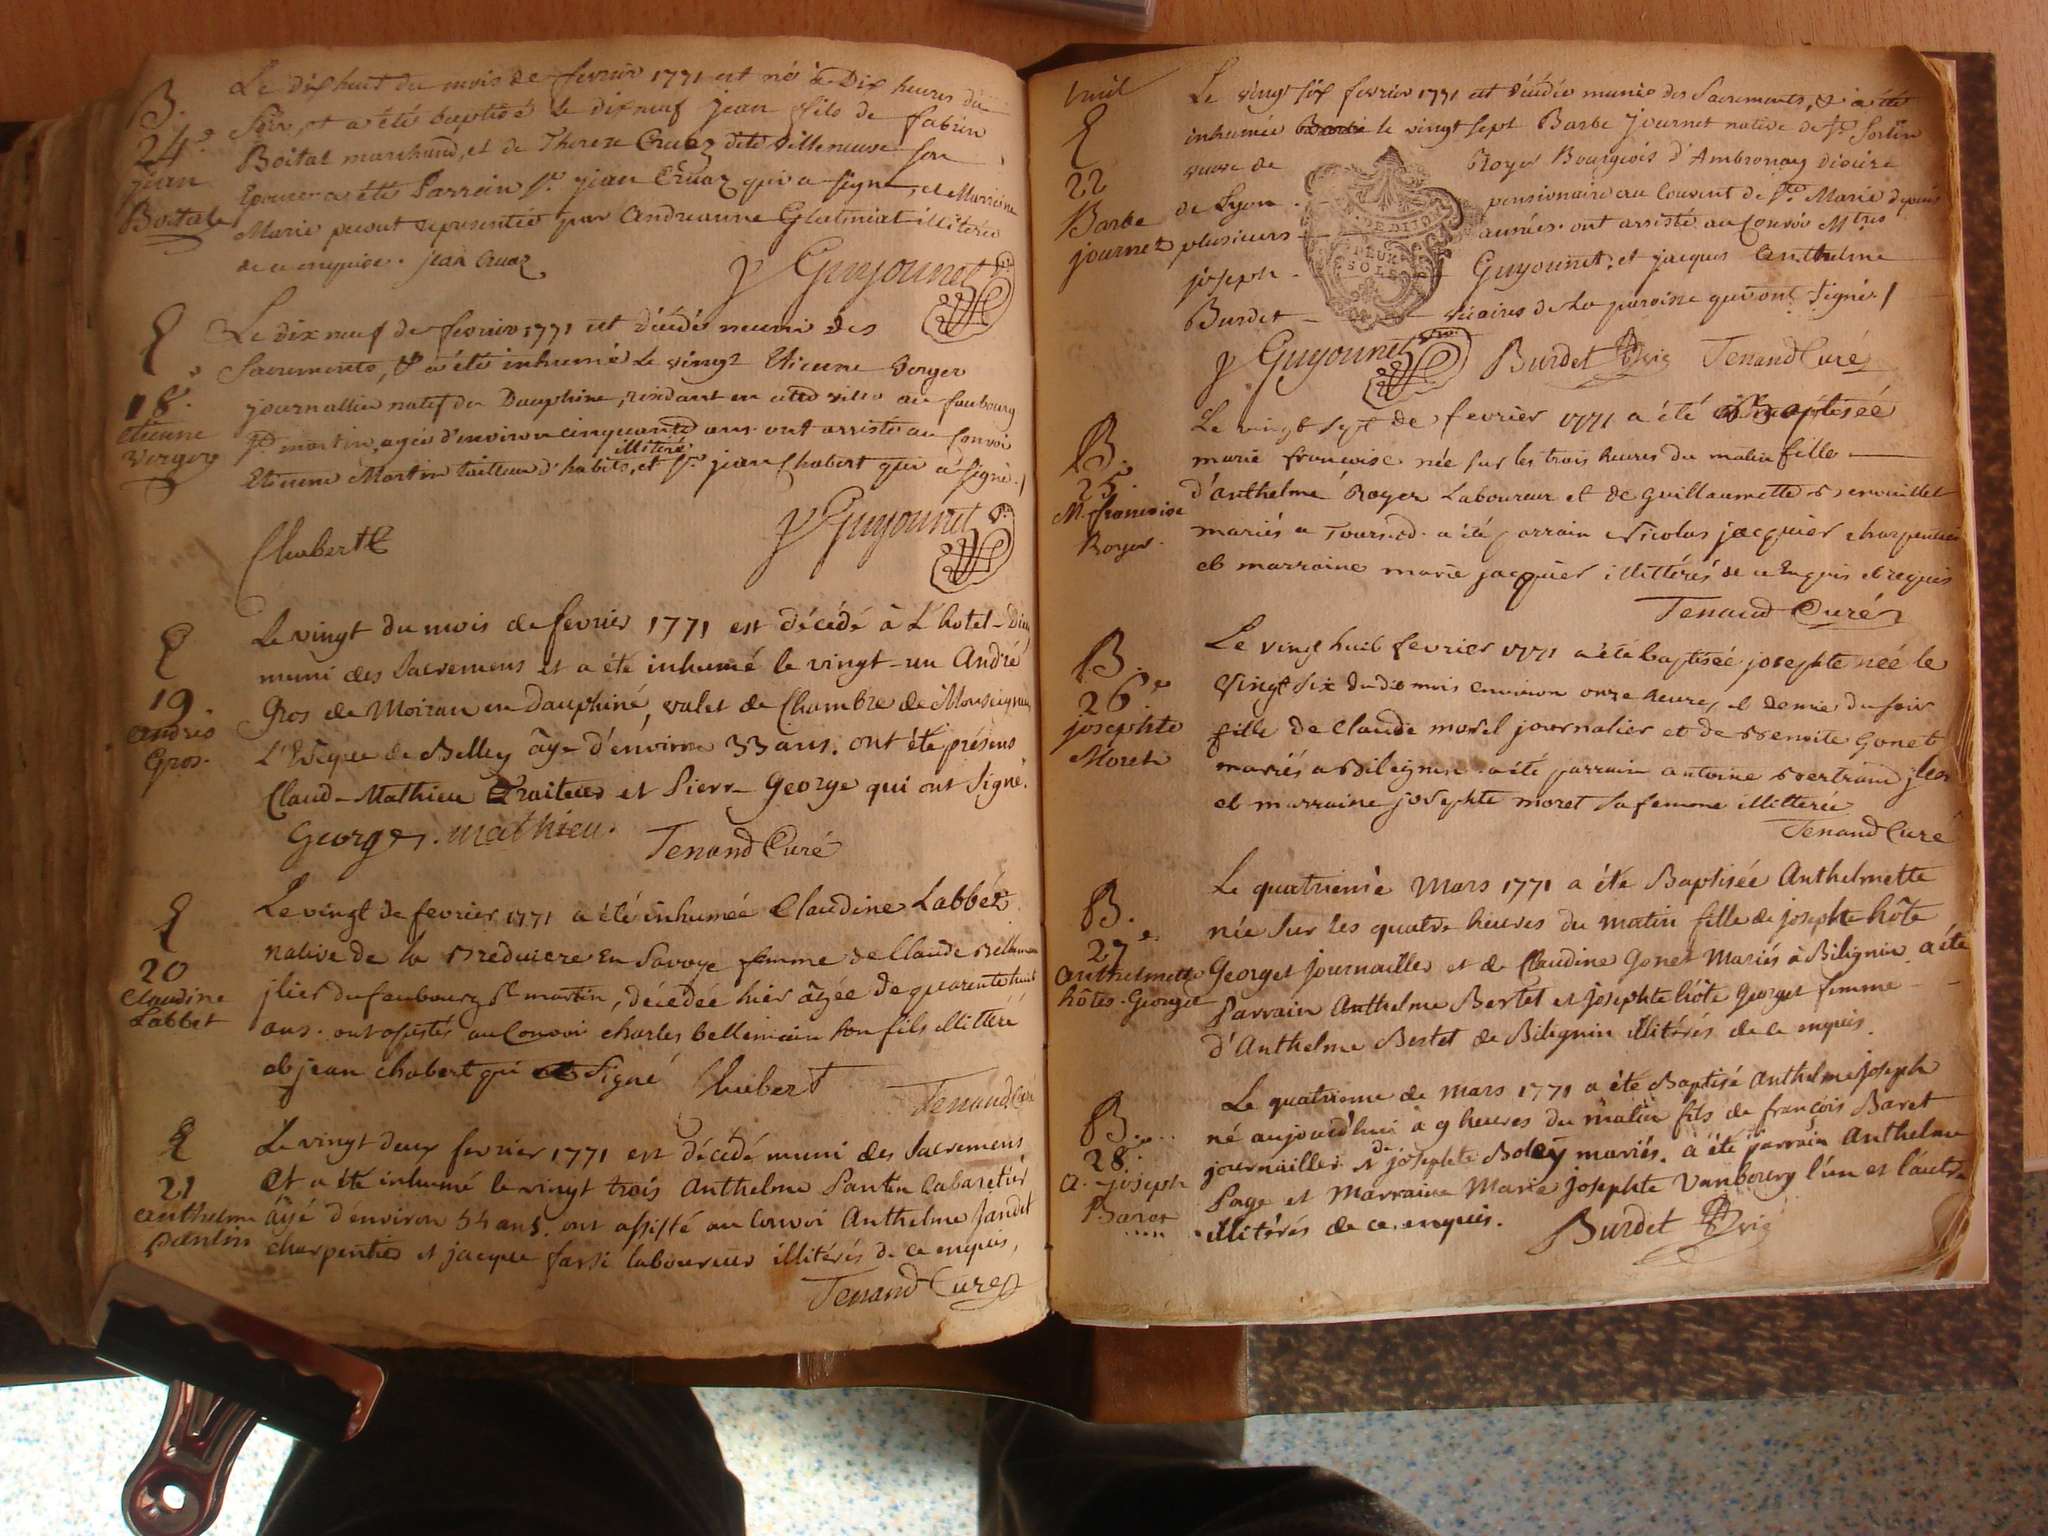 B.
24e
jean
Boital
Le dix huit du mois de fevrier 1771 est né à Dix heures du
Soir, et a été baptisé le dix neuf jean fils de fabien
Boital marchand, et de Therese Cruaz dite villeneuve son
Epouse a été Parrain Sr jean Cruaz qui a signé, et Marrine
Marie representée par Andreanne illiterée
de ce enquise. jean Cruaz
Guyounet
18.
etienne
Verger
Le dix neuf de fevrier 1771 est décédé muni des
Sacrements, & a été inhumé le vingt Etienne Verger
journallier natif du Dauphine, residant en cette ville au faubourg
St martin, agée d'environ cinquante ans. ont assisté au Convoi
illitéré
Etienne Martin tailleur d'habits, et Sr jean Chabert qui a signé./
Chabert
Guyounet
19.
andré
Gros.
Le vingt du mois de fevrier 1771 est décédé à L'hotel-Dieu
muni des Sacremens et a été inhumé le vingt-un André
Gros de Moiran en Dauphiné, valet de Chambre de Monseigneur
L'Evêque de Belley âgé d'environ 33 ans. ont été présens
Claude Mathieu Traiteur et Pierre George qui ont signé.
George. mathieu.
Tenand Curé
20
Claudine
Labbet
Le vingt de fevrier 1771 a été inhumée Claudine Labbéz
native de la en Savoye femme de Claude
jlier du faubourg St martin, décédée hier âgée de quarente huit
ans. ont assistés au Convoi charles bellemain son fils illitteré
et jean chabert qui a signé Chabert
Tenand Curé
21
anthelme
pantin
Le vingt deux fevrier 1771 est décédé muni des Sacremens
Et a été inhumé le vingt trois Anthelme Pantin Cabaretier
âgé d'environ 54 ans. ont assisté au Convoi Anthelme Jandet
charpentier et jacque farsi laboureur illitérés de ce enquis,
Tenand Curé
22
Barbe
journet
Le vingt six fevrier 1771 est décédée munie des Sacrements, & a été
inhumée le vingt sept Barbe journet native de St Sorlin
veuve de Royer Bourgeois d'Ambronay diocèse
de Lyon - pensionaire au Couvent de Ste Marie depuis
plusieurs - années. ont assisté au Convoi Mtres
joseph - Guyounet, et jacques Anthelme
Burdet - vicaires de La paroisse qui ont signés /
DEUX
SOLS
Guyounet Burdet Vric Tenand Curé
B.
25e.
M. francoise
Royer.
Le vingt sept de fevrier 1771 a été baptisée
marie francoise née sur les trois heures du matin fille
d'anthelme Royer Laboureur et de guillaumette
mariés a a été parrain Nicolas jacquier charpentier
et marraine marie jacquier illittérés de ce Enquis et requis
Tenand Curé
B.
26e
josephte
Moret
Le vingt huit fevrier 1771 a été baptisée josephte née le
vingt six dudit mois environ onze heures et demie du soir
fille de claude morel journalier et de Benoite gonet
mariés a Bilegnin. a été parrain antoine Bertrand jlier
et marraine josephte moret sa femme illitterée
Tenand Curé
B.
27e
anthelmette
hôte. George
Le quatrieme Mars 1771 a été Baptisée Anthelmette
née sur les quatre heures du matin fille de josephte hôte
Georget journailler et de Claudine Gonet Mariés à Bilignin. a été
Parrain Anthelme Bertet et josephte hôte Georget femme -
d'Anthelme Bertet de Bilegnin illitérés de ce enquis.
B.
28.
a. joseph
Baret
Le quatrieme de mars 1771 a été Baptisé Anthelme joseph
né aujourd'hui à 9 heures du matin fils de françois Baret
journailler et de josephte Bolley mariés. a été parrain Anthelme
Page et Marraine Marie josephte Vanbourg l'un et l'autre
illitérés de ce enquis. Burdet Vric